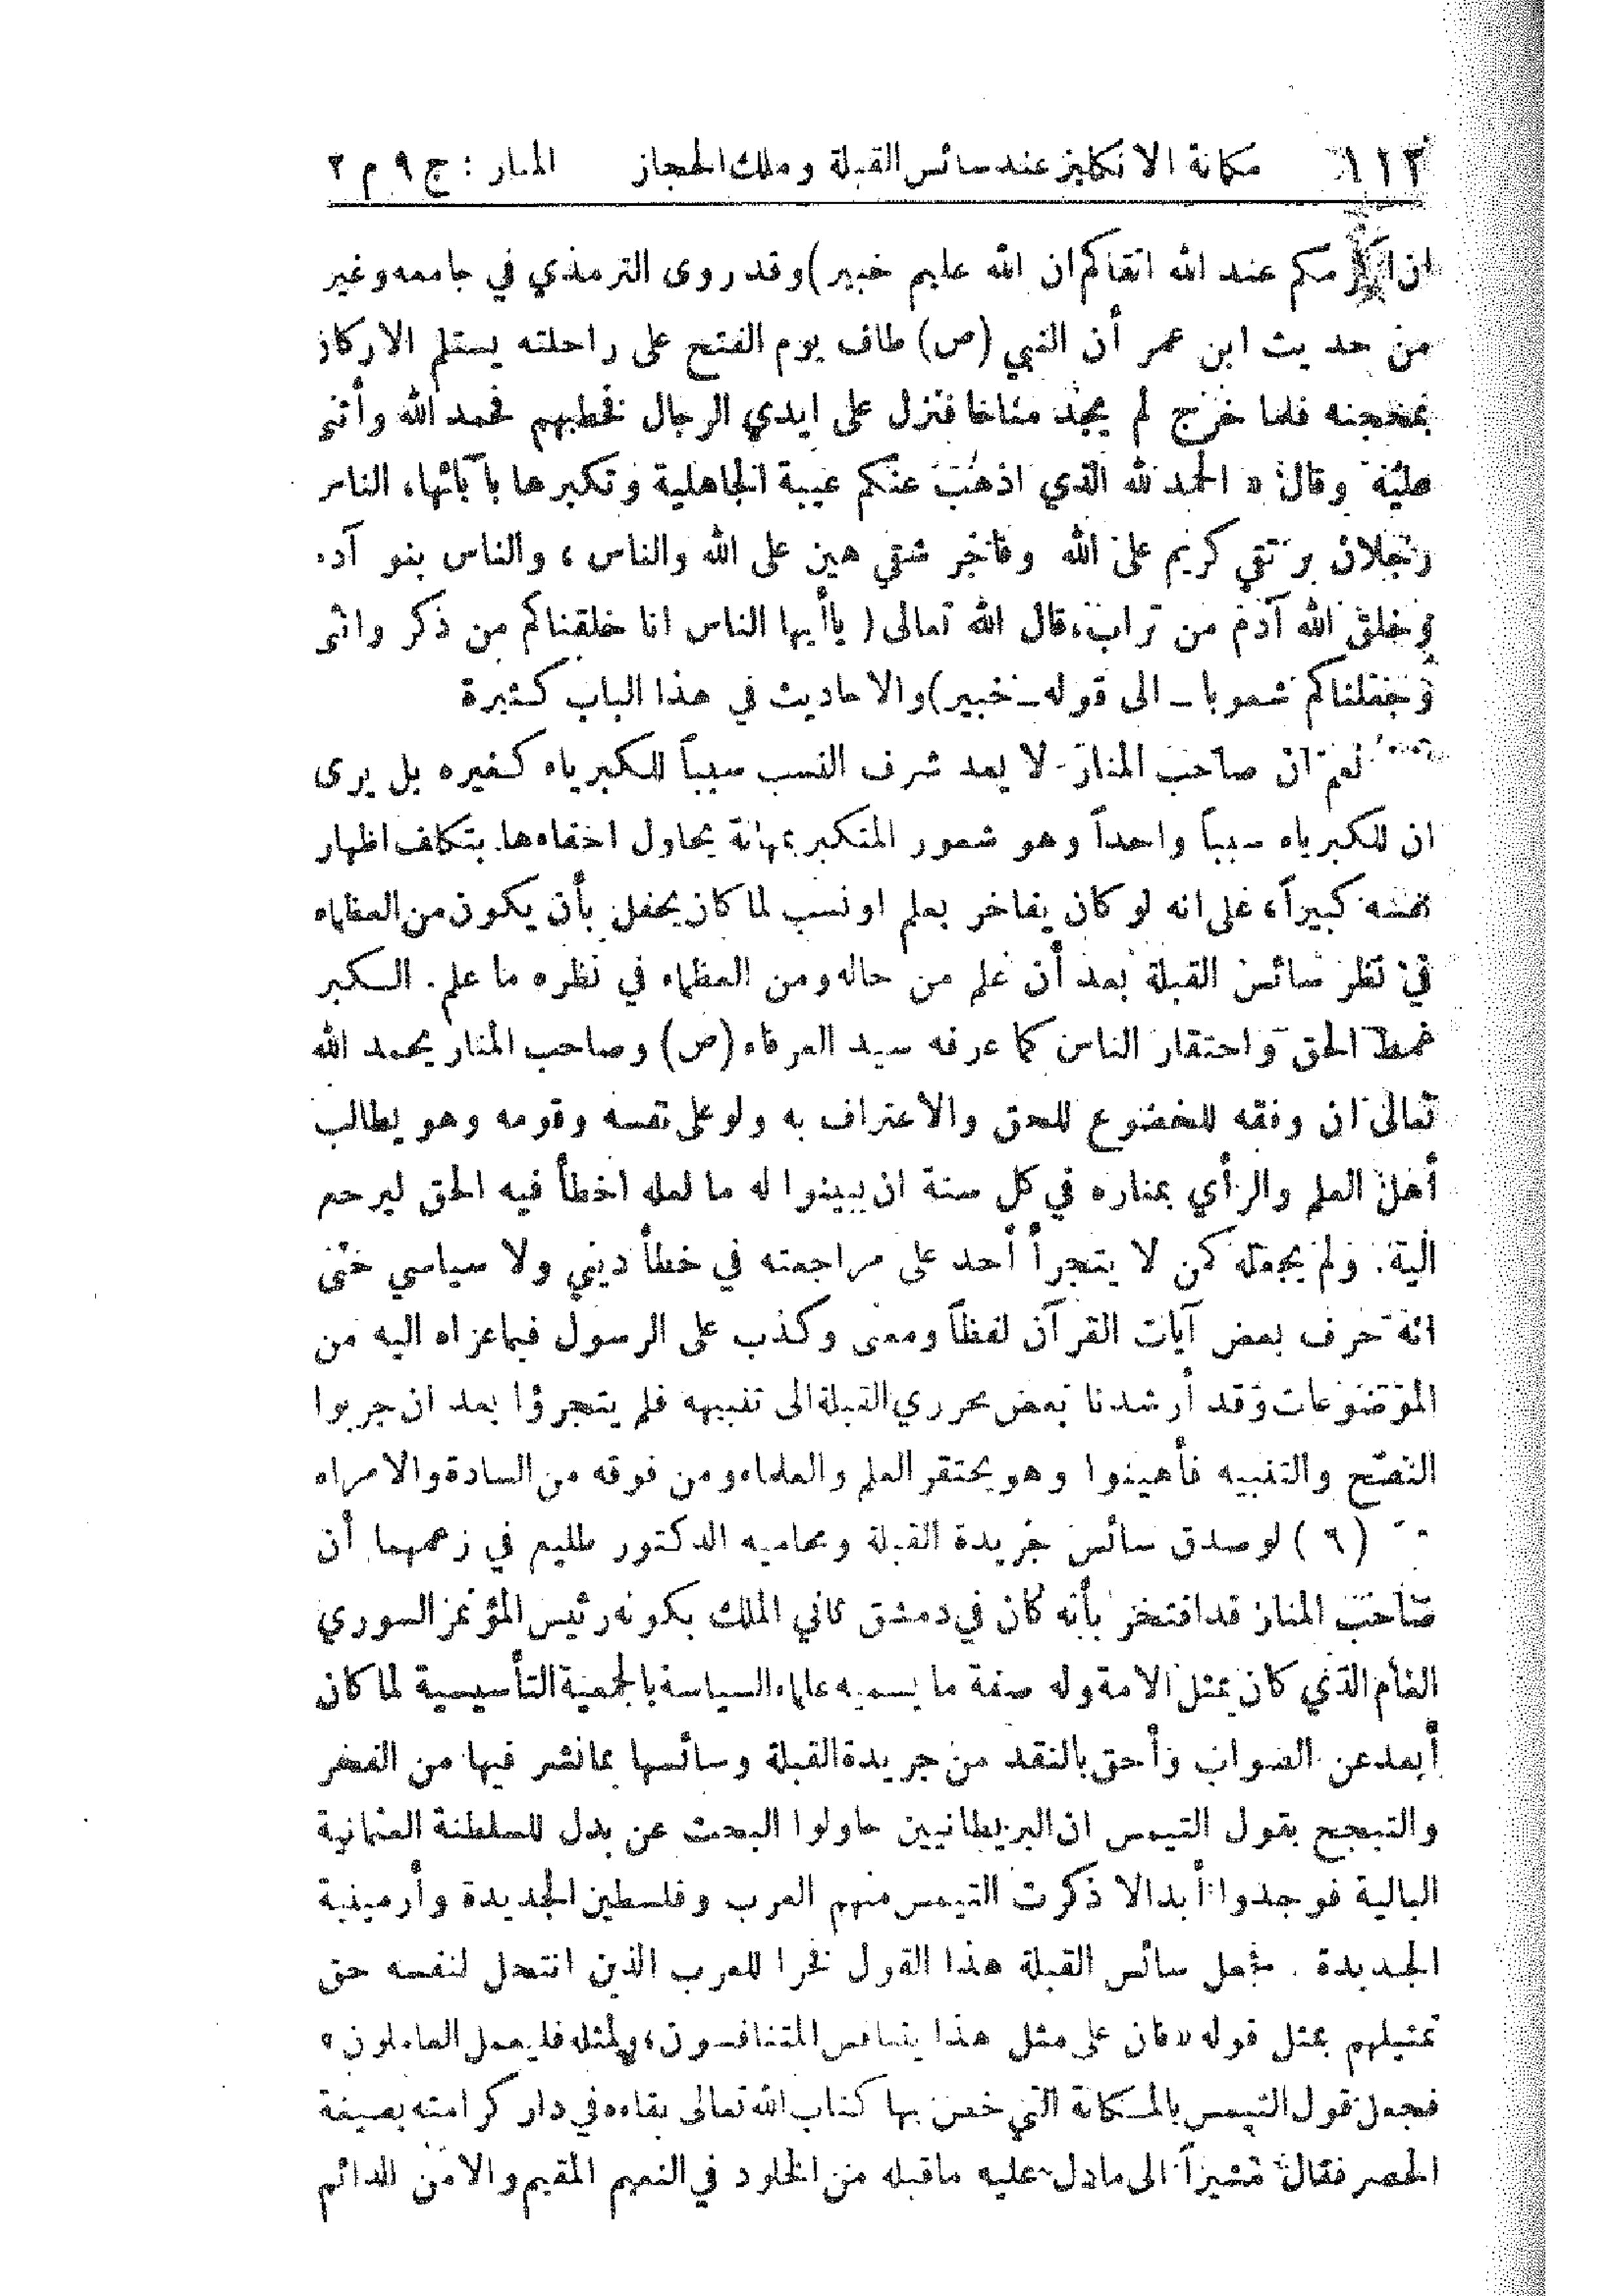 ١١٢ مكانة الانكليز عند سائس القبلة وملك الحجاز المنار : ج ٩ م ٢
ان اكرمكم عند الله اتقاكم ان الله عليم خبير) وقد روى الترمذي في جامعه وغير
من حديث ابن عمر أن النبي (ص) طاف يوم الفتح على راحلته يستلم الاركان
بمحجنه فلما خرج لم يجد مناخا فنزل على ايدي الرجال فخطبهم فحمد الله وأثنى
عليه وقال « الحمد لله الذي اذهب عنكم عيبة الجاهلية وتكبرها بآبائها، الناس
رجلان بر تقي كريم على الله وفاجر شقي هين على الله والناس ، والناس بنو آد
وخلق الله آدم من تراب، قال الله تعالى ( ياأيها الناس انا خلقناكم من ذكر وانثى
وجعلناكم شعوبا ـ الى قوله ـ خبير) والاحاديث في هذا الباب كثيرة
نعم ان صاحب المنار لا يعد شرف النسب سبباً للكبرياء كغيره بل يرى
ان للكبرياء سبباً واحداً وهو شعور المتكبر بمهانة يحاول اخفاءها بتكلف اظهار
نفسه كبيراً، على انه لو كان يفاخر بعلم او نسب لما كان يحفل بأن يكون من العظماء
في نظر سائس القبلة بعد أن علم من حاله ومن العظماء في نظره ما علم. الكبر
غمط الحق واحتقار الناس كما عرفه سيد العرفاء (ص) وصاحب المنار يحمد الله
تعالى ان وفقه للخضوع للحق والاعتراف به ولو على نفسه وقومه وهو يطالب
أهل العلم والرأي بمناره في كل سنة ان يبينوا له ما لعله اخطأ فيه الحق ليرجع
اليه. ولم يجعله كمن لا يتجرأ أحد على مراجعته في خطأ ديني ولا سياسي حتى
انه حرف بعض آيات القرآن لفظاً ومعنى وكذب على الرسول فيما عزاه اليه من
الموضوعات وقد أرشدنا بعض محرري القبلة الى تنبيهه فلم يتجرؤا بعد ان جربوا
النصح والتنبيه فأهينوا وهو يحتقر العلم والعلماء ومن فوقه من السادة والامراء
(٦) لو صدق سائس جريدة القبلة ومحاميه الدكتور طليم في زعمهما أن
صاحب المنار قد افتخر بأنه كان في دمشق ثاني الملك بكونه رئيس المؤتمر السوري
العام الذي كان يمثل الامة وله صفة ما يسميه علماء السياسة بالجمعية التأسيسية لما كان
أبعد عن الصواب وأحق بالنقد من جريدة القبلة وسائسها بما نشر فيها من الفخر
والتبجح بقول التيمس ان البريطانيين حاولوا البحث عن بدل للسلطنة العثمانية
البالية فوجدوا أبدالا ذكرت التيمس منهم العرب وفلسطين الجديدة وأرمينية
الجديدة . فجعل سائس القبلة هذا القول فخرا للعرب الذين انتحل لنفسه حق
تمثيلهم بمثل قوله «فان على مثل هذا يتنافس المتنافسون، ولمثله فليعمل العاملون »
فجعل قول التيمس بالمكانة التي خص بها كتاب الله تعالى بقاءه في دار كرامته بصيغة
الحصر فقال مشيراً الى مادل عليه ماقبله من الخلود في النعيم المقيم والامن الدائم